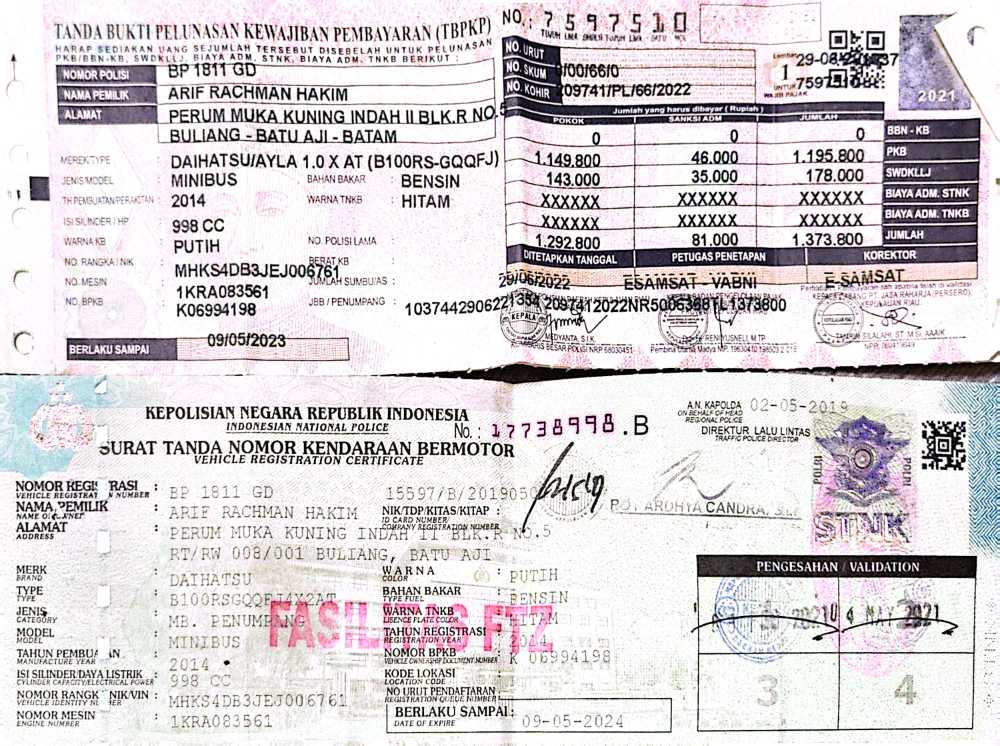 TANDA BUKTI PELUNASAN KEWAJIBAN PEMBAYARAN (TBPKP)
HARAP SEDIAKAN UANG SEJUMLAH TERSEBUT DISEBELAH UNTUK PELUNASAN
PKB/BBN-KB, SWDKLLJ, BIAYA ADM. STNK, BIAYA ADM. TNKB BERIKUT :
NOMOR POLISI BP 1811 GD
NAMA PEMILIK ARIF RACHMAN HAKIM
ALAMAT PERUM MUKA KUNING INDAH II BLK.R NO.5
BULIANG - BATU AJI - BATAM
MEREK/TYPE DAIHATSU/AYLA 1.0 X AT (B100RS-GQQFJ)
JENIS/MODEL MINIBUS BAHAN BAKAR : BENSIN
TH PEMBUATAN/PERAKITAN 2014 WARNA TNKB : HITAM
ISI SILINDER / HP 998 CC
WARNA KB PUTIH NO. POLISI LAMA :
NO. RANGKA / NIK MHKS4DB3JEJ006761 BERAT KB
NO. MESIN 1KRA083561 JUMLAH SUMBU/AS :
NO. BPKB K06994198 JBB / PENUMPANG :
BERLAKU SAMPAI 09/05/2023
NO.: 7597510
TUJUH LIMA TUJUH LIMA SATU NOL
NO. URUT
NO. SKUM /00/66/0
NO. KOHIR 209741/PL/66/2022
Lembar
1
UNTUK
WAJIB PAJAK
2021
Jumlah yang harus dibayar ( Rupiah )
POKOK SANKSI ADM JUMLAH
0 0 0 BBN - KB
1.149.800 46.000 1.195.800 PKB
143.000 35.000 178.000 SWDKLLJ
XXXXXX XXXXXX XXXXXX BIAYA ADM. STNK
XXXXXX XXXXXX XXXXXX BIAYA ADM. TNKB
1.292.800 81.000 1.373.800 JUMLAH
DITETAPKAN TANGGAL PETUGAS PENETAPAN KOREKTOR
29/06/2022 ESAMSAT - VABNI E-SAMSAT
KEPALA CABANG PT. JASA RAHARJA (PERSERO)
KEPULAUAN RIAU
KEPALA
KEPOLISIAN NEGARA REPUBLIK INDONESIA
INDONESIAN NATIONAL POLICE
No.: 17738998 .B
SURAT TANDA NOMOR KENDARAAN BERMOTOR
VEHICLE REGISTRATION CERTIFICATE
A.N. KAPOLDA 02-05-2019
ON BEHALF OF HEAD
REGIONAL POLICE
DIREKTUR LALU LINTAS
TRAFFIC POLICE DIRECTOR
POLRI
POLRI
STNK
NOMOR REGISTRASI : BP 1811 GD
VEHICLE REGISTRATION NUMBER
NAMA PEMILIK : ARIF RACHMAN HAKIM NIK/TDP/KITAS/KITAP :
NAME OF OWNER ID CARD NUMBER/
COMPANY REGISTRATION NUMBER
ALAMAT : PERUM MUKA KUNING INDAH II BLK.R NO.5
ADDRESS RT/RW 008/001 BULIANG, BATU AJI
MERK : DAIHATSU WARNA : PUTIH
BRAND COLOR
TYPE : B100RSGQQFJ4X2AT BAHAN BAKAR : BENSIN
TYPE TYPE FUEL
JENIS : MB. PENUMPANG WARNA TNKB : HITAM
CATEGORY LISENCE PLATE COLOR
MODEL : MINIBUS TAHUN REGISTRASI
MODEL REGISTRATION YEAR
TAHUN PEMBUATAN : 2014 NOMOR BPKB : K 06994198
MANUFACTURE YEAR VEHICLE OWNERSHIP DOCUMENT NUMBER
ISI SILINDER/DAYA LISTRIK : 998 CC KODE LOKASI :
CYLINDER CAPACITY/ELECTRICAL POWER LOCATION CODE
NOMOR RANGKA/NIK/VIN : MHKS4DB3JEJ006761 NO URUT PENDAFTARAN
VEHICLE IDENTITY NUMBER REGISTRATION QUEUE NUMBER
NOMOR MESIN : 1KRA083561
ENGINE NUMBER
BERLAKU SAMPAI : 09-05-2024
DATE OF EXPIRE
FASILITAS FTZ
PENGESAHAN / VALIDATION
2021
4 MAY 2021
3 4